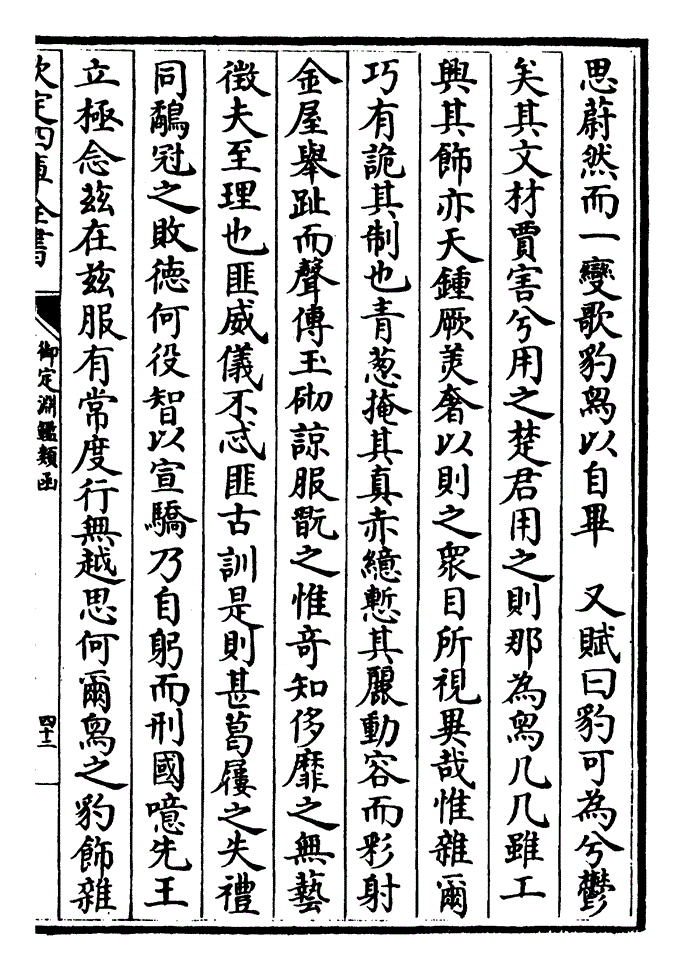 思蔚然而一變歌豹舄以自畢　又賦曰豹可為兮鬱
矣其文材賈害兮用之楚君用之則那為舄几几雖工
興其飾亦天鍾厥美奢以則之衆目所視異哉惟雜爾
巧有詭其制也青葱掩其真赤繶慙其麗動容而彩射
金屋舉趾而聲傳玉砌諒服翫之惟奇知侈靡之無藝
徵夫至理也匪威儀不忒匪古訓是則甚葛屨之失禮
同鷸冠之敗徳何役智以宣驕乃自躬而刑國噫先王
立極念兹在兹服有常度行無越思何爾舄之豹飾雜
欽定四庫全書
御定淵鑑類函
四十三